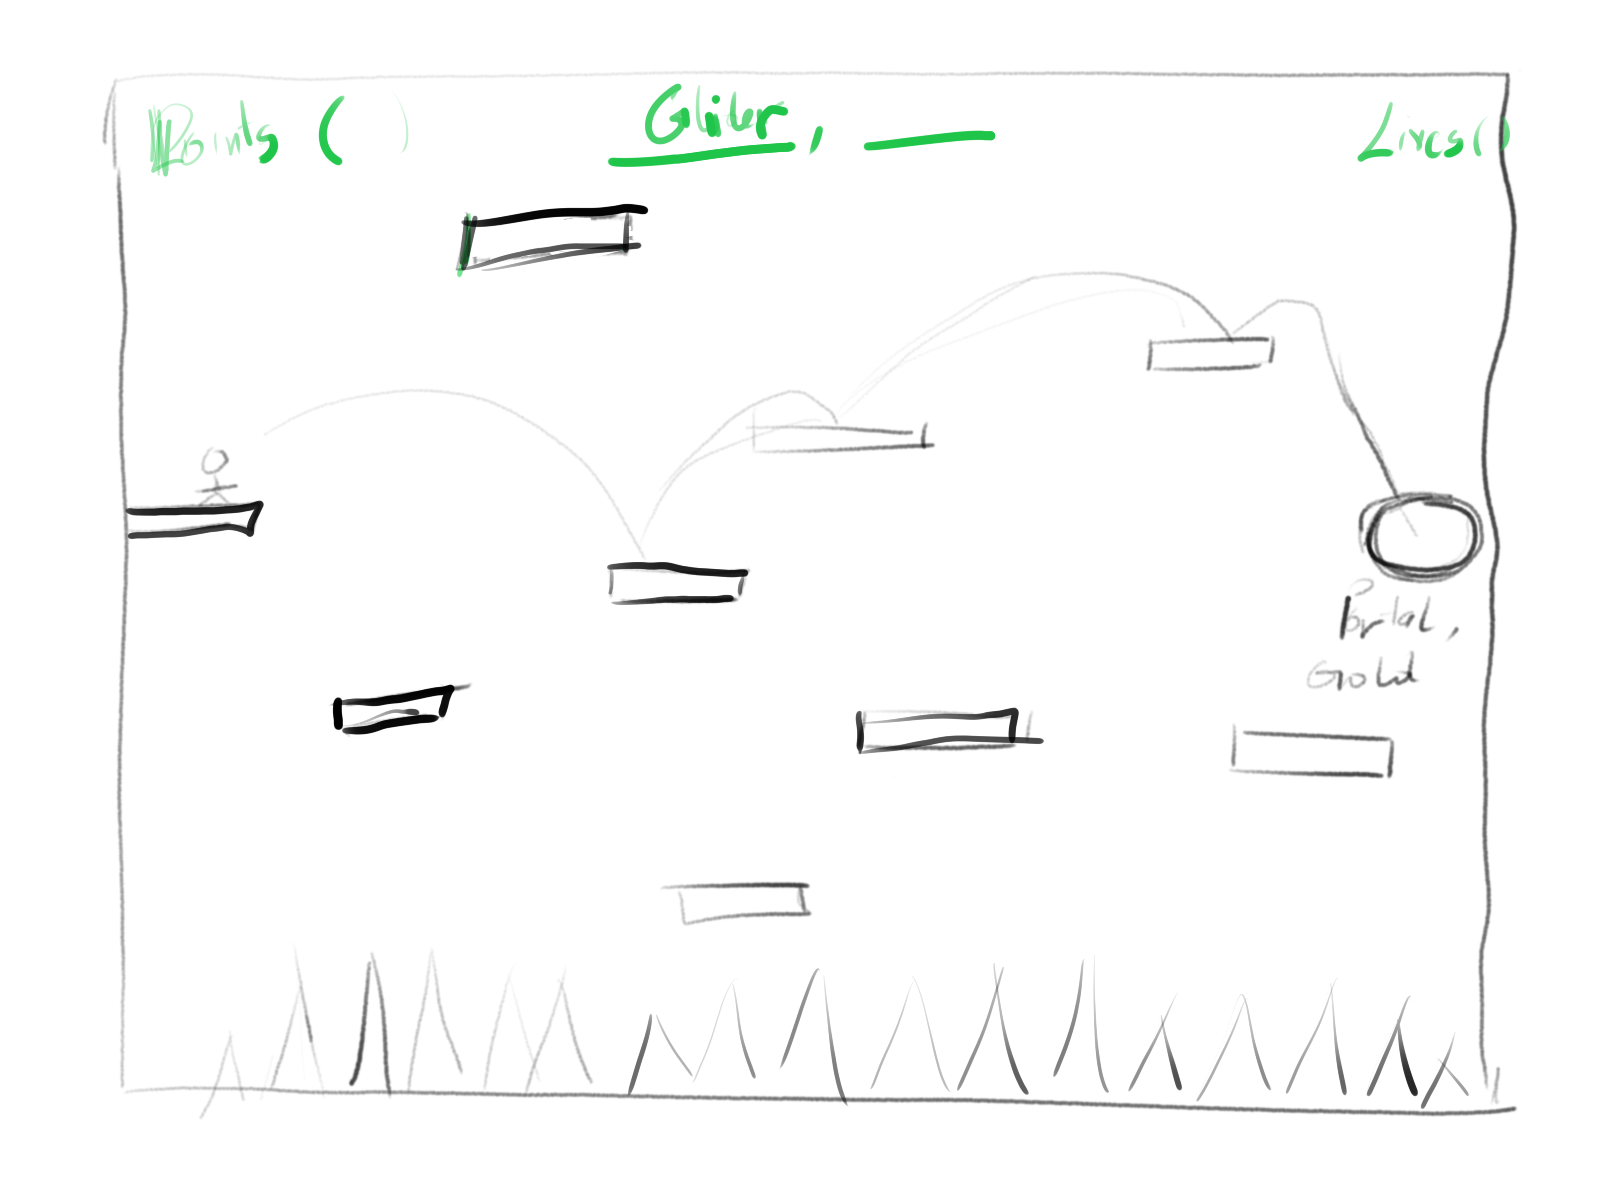 Points ( )
Glider, ____
Lives()
Portal,
Gold